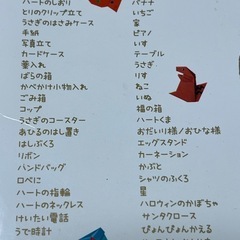 ハートのしおり
とりのクリップ立て
うさぎのはさみケース
手紙
写真立て
カードケース
薬入れ
ばらの箱
かべかけ小物入れ
ごみ箱
コップ
うさぎのコースター
あひるのはし置き
はしぶくろ
リボン
ハンドバッグ
ロペに
ハートの指輪
ハートのネックレス
けいたい電話
うで時計
バナナ
いちご
家
ピアノ
いす
テーブル
うさぎ
りす
ねこ
いぬ
福の箱
ハートくま
おだいり様/おひな様
エッグスタンド
カーネーション
かぶと
シャツのふくろ
星
ハロウィンのかぼちゃ
サンタクロース
ぴょんぴょんかえる